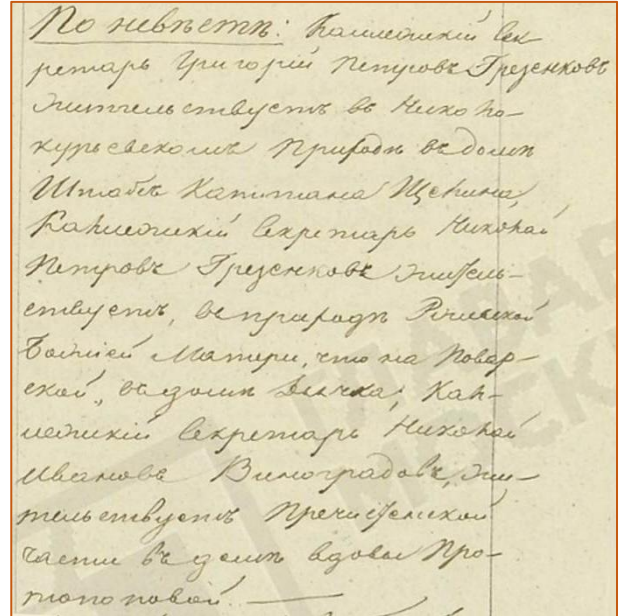 По невѣстѣ: Коллежскій Сек
ретарь Григорій Петровъ Грезенковъ
жительствуетъ въ Нико ло-
курьевскомъ Приходѣ въ домѣ
Штабсъ Капитана Щепина,
Коллежскій Секретарь Николай
Петровъ Грезенковъ житель-
ствуетъ, въ приходѣ Ржевской
Божіей Матери, что на Повар-
ской, въ домѣ Дьячка; Кол-
лежскій Секретарь Николай
Ивановъ Виноградовъ, жи-
тельствуетъ Пречистенской
части въ домѣ вдовы Про-
топоповой. —
ГЛАВАР
МОСКВ